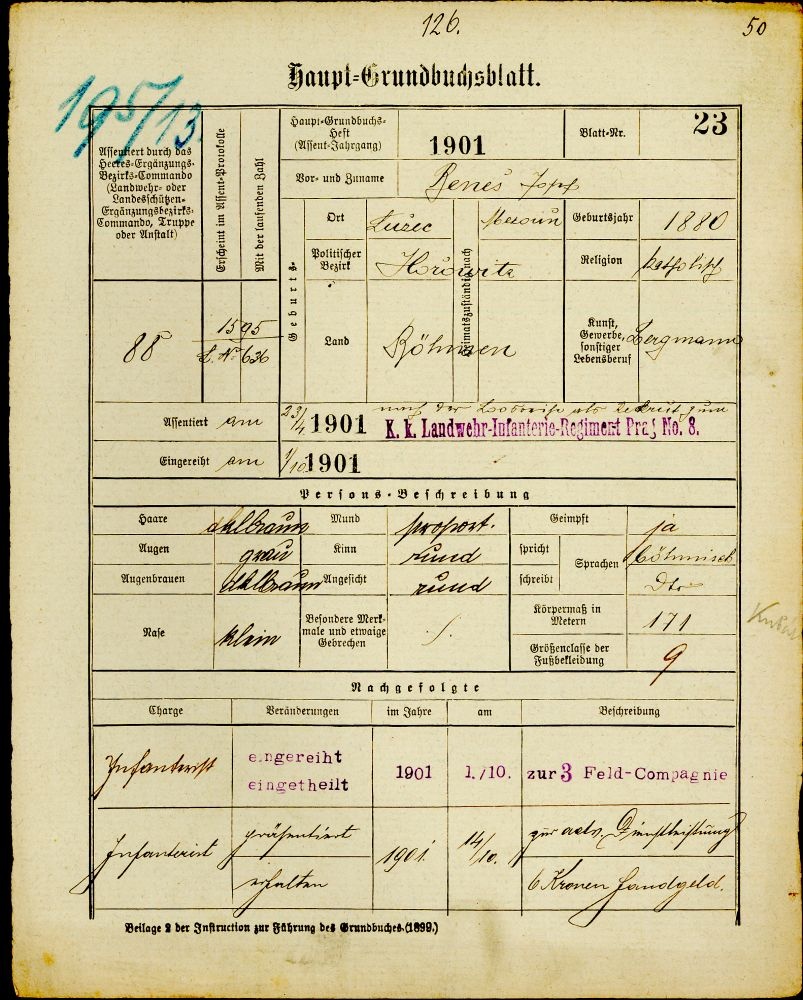 126.
50
195/13.
Haupt-Grundbuchsblatt.
Assentiert durch das
Heeres-Ergänzungs-
Bezirks-Commando
(Landwehr- oder
Landesschützen-
Ergänzungsbezirks-
Commando, Truppe
oder Anstalt)
Erscheint im Assent-Protokolle
Mit der laufenden Zahl
Haupt-Grundbuchs-
Heft
(Assent-Jahrgang)
1901
Blatt-Nr.
23
Vor- und Zuname
Beneš Josef
Geburts-
Ort
Lužec
Heimatszuständig nach
Beroun
Geburtsjahr
1880
Politischer
Bezirk
Hořowitz
Religion
katholisch
Land
Böhmen
Kunst,
Gewerbe,
sonstiger
Lebensberuf
Bergmann
88
1595
L. Nr. 636
Assentiert am
23/4 1901
nach der Losreihe als Rekrut zum
K. k. Landwehr-Infanterie-Regiment Prag No. 8.
Eingereiht am
1/10 1901
Persons-Beschreibung
Haare
dklbraun
Mund
proport.
Geimpft
ja
Augen
grau
Kinn
rund
spricht
Sprachen
böhmisch
Augenbrauen
dklbraun
Angesicht
rund
schreibt
dto
Nase
klein
Besondere Merk-
male und etwaige
Gebrechen
./.
Körpermaß in
Metern
171
Größenclasse der
Fußbekleidung
9
Nachgefolgte
Charge
Veränderungen
im Jahre
am
Beschreibung
Infanterist
eingereiht
eingetheilt
1901
1./10.
zur 3 Feld-Compagnie
Infanterist
präsentiert
1901.
14/10.
zur activ. Dienstleistung
erhalten
6 Kronen Handgeld.
Beilage 2 der Instruction zur Führung des Grundbuches (1899.)